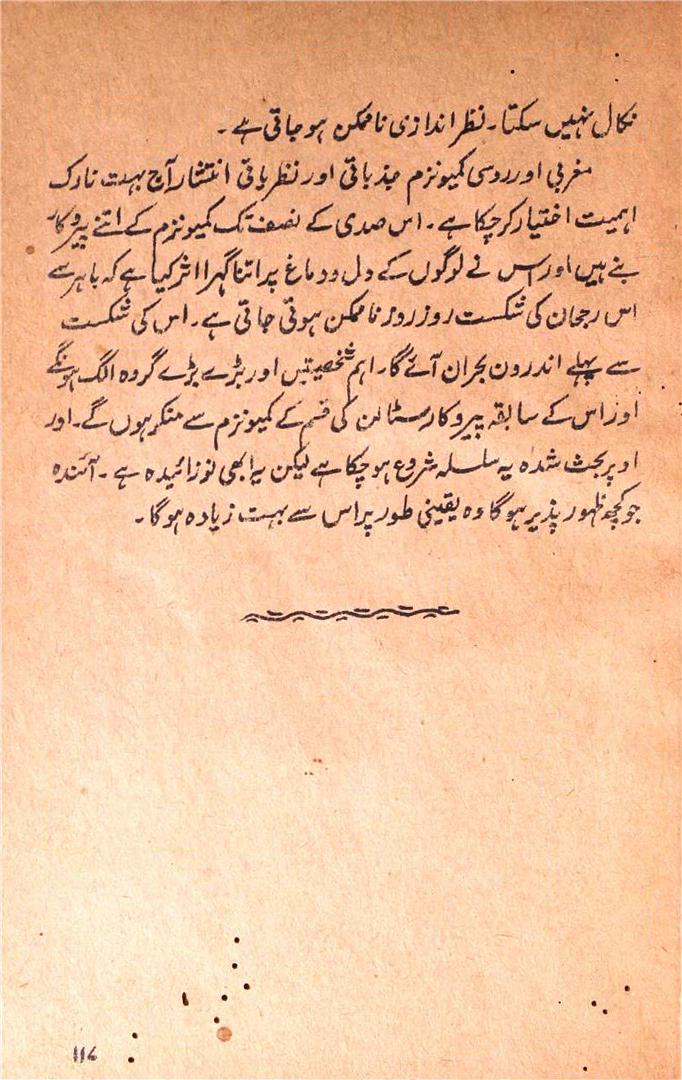 نکال نہیں سکتا۔ نظر اندازی ناممکن ہو جاتی ہے۔
مغربی اور روسی کمیونزم جذباتی اور نظریاتی انتشار آج بہت نازک
اہمیت اختیار کر چکا ہے۔ اس صدی کے نصف تک کمیونزم کے اتنے پیروکار
بنے ہیں اور اس نے لوگوں کے دل و دماغ پر اتنا گہرا اثر کیا ہے کہ باہر سے
اس رجحان کی شکست روز روز ناممکن ہوتی جاتی ہے۔ اس کی شکست
سے پہلے اندرون بحران آئے گا۔ اہم شخصیتیں اور بڑے بڑے گروہ الگ ہونگے
اور اس کے سابقہ پیروکار سٹالن کی قسم کے کمیونزم سے منکر ہوں گے۔ اور
اوپر بحث شدہ یہ سلسلہ شروع ہو چکا ہے لیکن یہ ابھی نوزائیدہ ہے۔ آئندہ
جو کچھ ظہور پذیر ہوگا وہ یقینی طور پر اس سے بہت زیادہ ہوگا۔